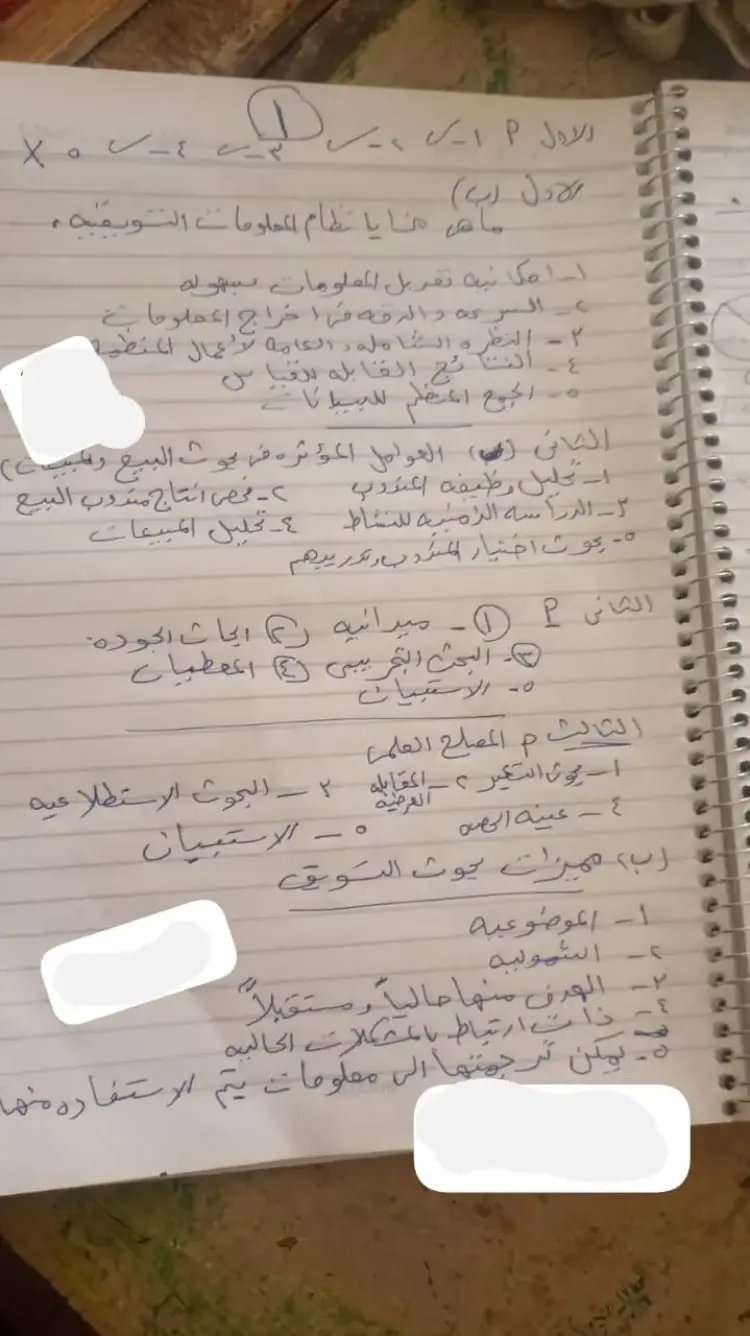 ١
الاول P ١- ✓ ٢- ✓ ٣- ✓ ٤- ✓ ٥ X
الاول (ب)
ماهى مزايا نظام المعلومات التسويقيه
١- امكانيه تعديل المعلومات بسهوله
٢- السرعه والدقه فى اخراج المعلومات
٣- النظره الشامله والعامه لأعمال المنظمه
٤- النتائج القابله للقياس
٥- الجمع المنظم للبيانات
الثانى (ب) العوامل المؤثره فى بحوث البيع والمبيعات)
١- تحليل وظيفه المندوب ٢- فحص انتاج مندوب البيع
٣- الدراسه الزمنيه للنشاط ٤- تحليل المبيعات
٥- بحوث اختيار المندوب وتدريبهم
الثانى P ١- ميدانيه ٢ ابحاث الجوده
٣- البحث التجريبى ٤ المعطيات
٥- الاستبيان
الثالث P المصلح العلمى
١- بحوث التسعير ٢- المقابله العرضيه ٣- البحوث الاستطلاعيه
٤- عينه الحصه ٥- الاستبيان
(ب) مميزات بحوث التسويق
١- الموضوعيه
٢- الشموليه
٣- الهدف منها حالياً ومستقبلاً
٤- ذات ارتباط بالمشكلات الحاليه
٥- يمكن ترجمتها الى معلومات يتم الاستفاده منها